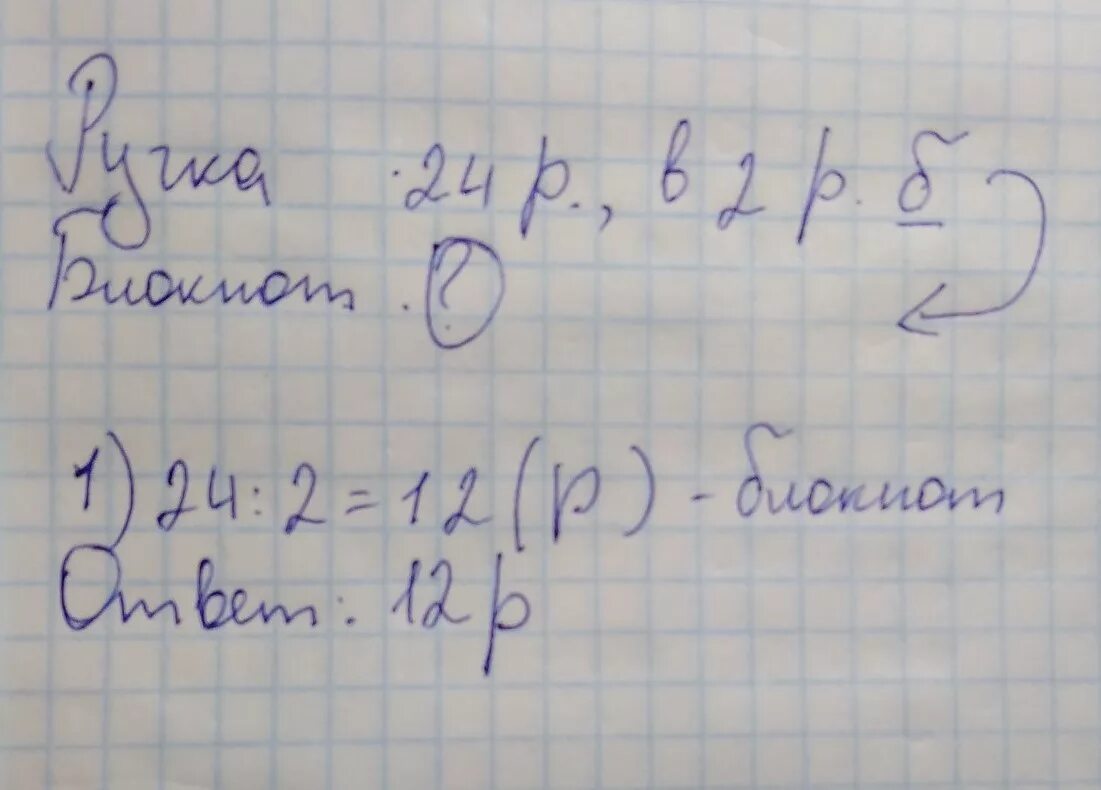 Ручка . 24 р., в 2 р. б
Блокнот . ?
1) 24 : 2 = 12 (р) - блокнот
Ответ: 12 р